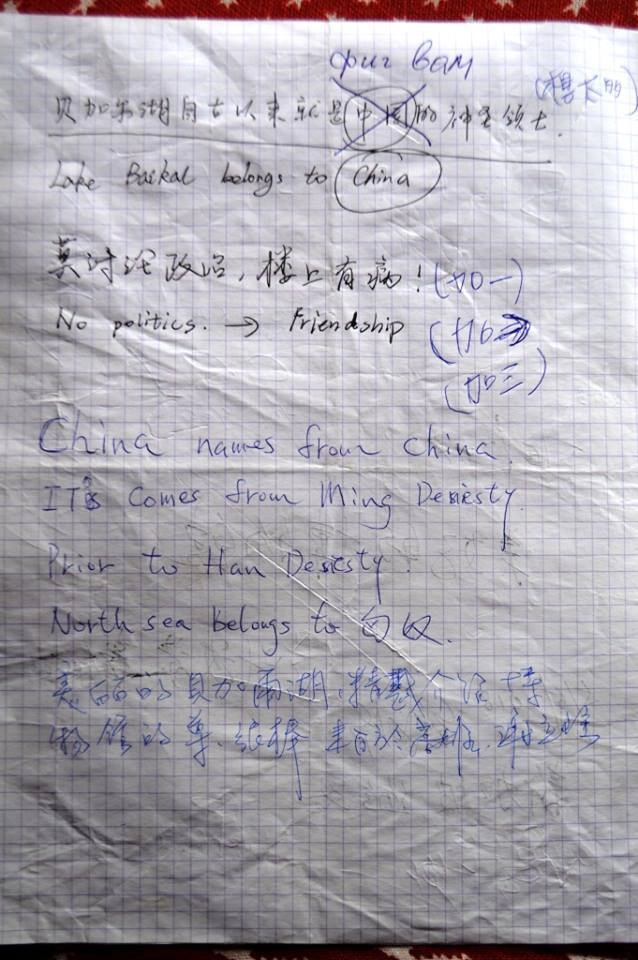 фиг вам
(想太多)
贝加尔湖自古以来就是中国的神圣领土.
Lake Baikal belongs to China
莫讨论政治，楼上有病！(加一)
No politics. → Friendship (加二)
(加三)
China names from China.
IT's Comes from Ming Desiesty.
Prior to Han Desiesty.
North sea belongs to 匈奴.
美丽的贝加爾湖,精彩介绍博
物馆的 来自於